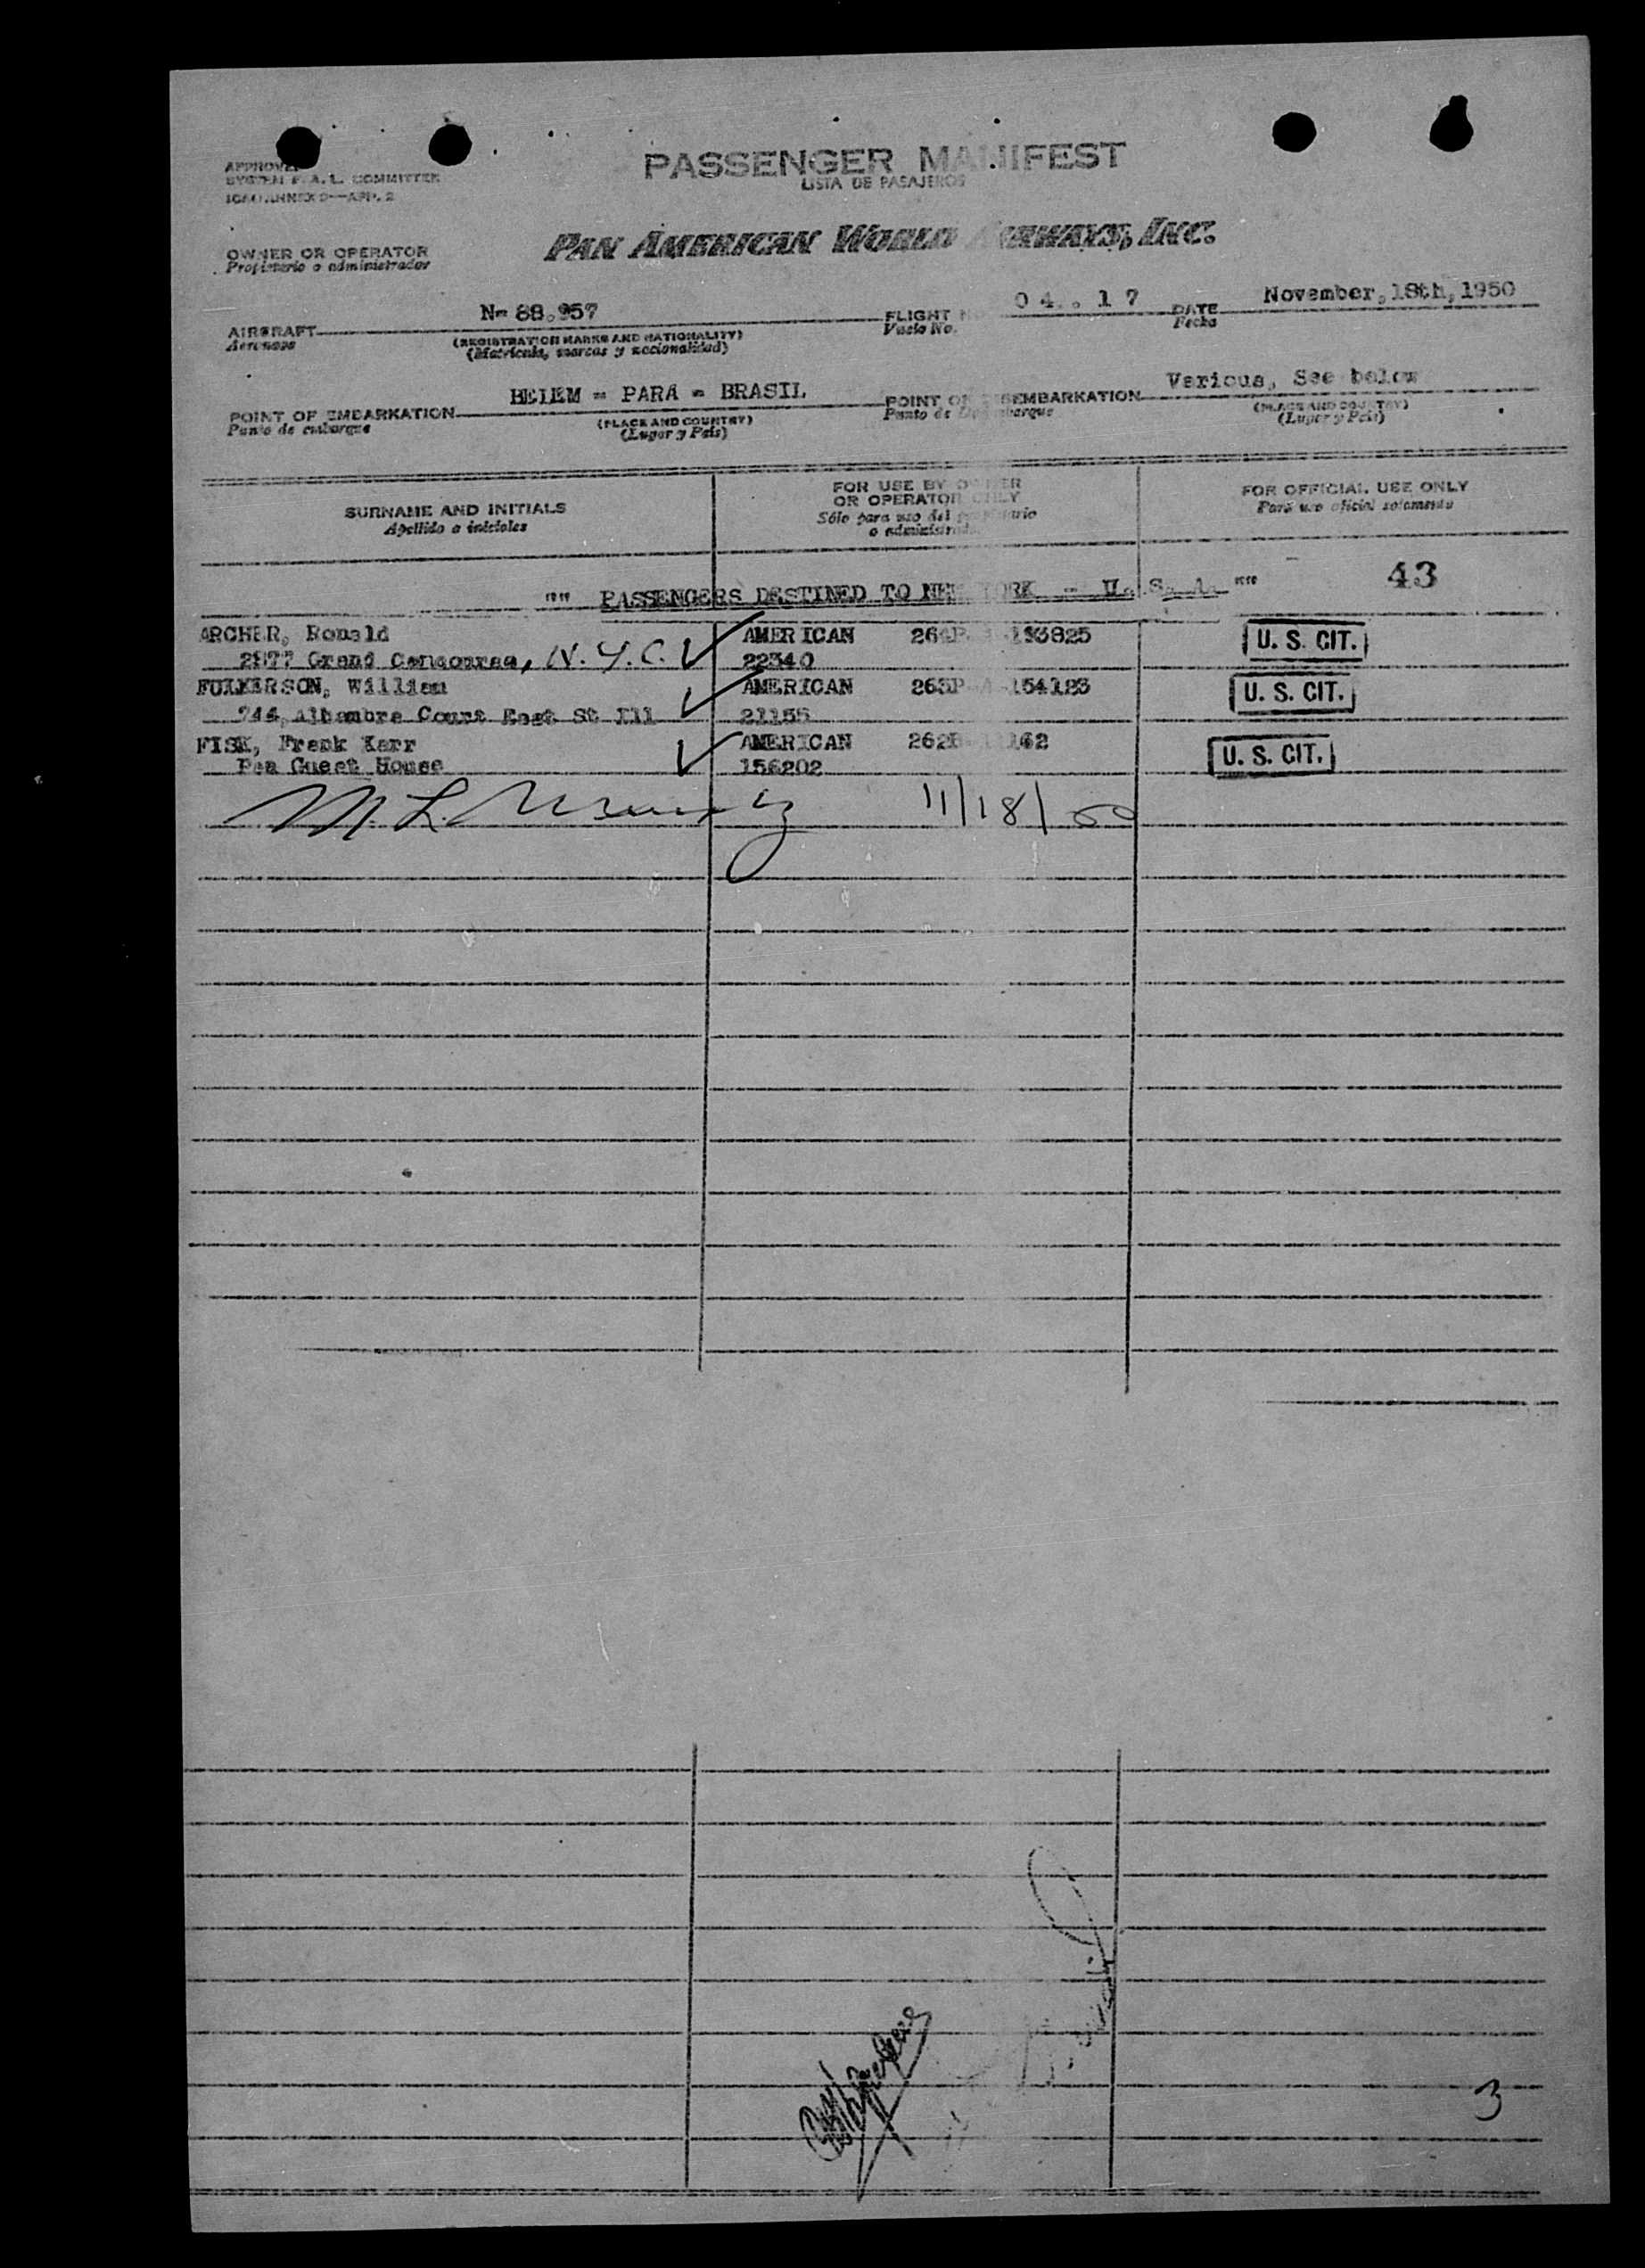 PASSENGER MANIFEST
LISTA DE PASAJEROS
APPROVED
SYSTEM F.A.L. COMMITTEE
ICAO ANNEX 9—APP. 2
PAN AMERICAN WORLD AIRWAYS, INC.
OWNER OR OPERATOR
Propietario o administrador
N- 88.957
04..17
November, 18th, 1950
AIRCRAFT
Aeronave
(REGISTRATION MARKS AND NATIONALITY)
(Matrícula, marcas y nacionalidad)
FLIGHT
Vuelo No.
DATE
Fecha
BELEM - PARA - BRASIL
Various, See below
POINT OF EMBARKATION
Punto de embarque
(PLACE AND COUNTRY)
(Lugar y País)
POINT OF DISEMBARKATION
Punto de Desembarque
(PLACE AND COUNTRY)
(Lugar y País)
SURNAME AND INITIALS
Apellido e iniciales
FOR USE BY OWNER
OR OPERATOR ONLY
Sólo para uso del propietario
o administrador
FOR OFFICIAL USE ONLY
Para uso oficial solamente
"" PASSENGERS DESTINED TO NEW YORK - U. S. A. ""
43
ARCHER, Ronald AMERICAN 153825 U. S. CIT.
Grand Concourse, N.Y.C. 22340
FULKERSON, William AMERICAN 154123 U. S. CIT.
744, Alhambra Court East St Ill 21155
FISK, Frank Karr AMERICAN U. S. CIT.
Paa Guest House 156202
M. L. 11/18/50
3